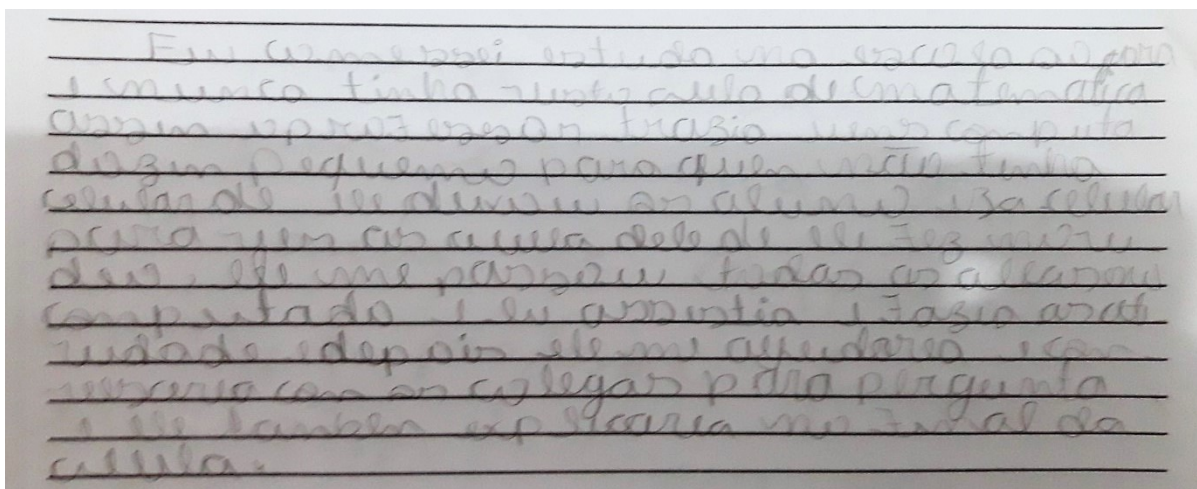 Eu comessei estuda na escola agora
e nunca tinha visto aula de matematica
assim o professor trasia uns computa
dozin pequeno para quen não tinha
celular de ele deixou os aluno usa celular
para ver as aula dele de ele fez
ele me passou todas as no
computado e eu assistia e fasia as ati
vidade e depois ele me ajudares e con
versaria com os colegas para pergunta
e ele tanben explicaria no final da
aula.